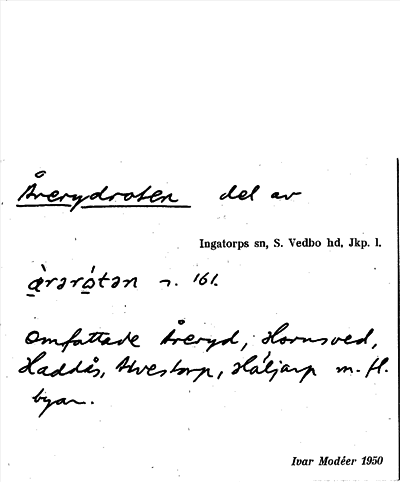 Årerydroten del av
Ingatorps sn, S. Vedbo hd, Jkp. l.
æ̀rarótan n. 161.
Omfattade Åreryd, Hornsved,
Haddås, Alvestorp, Háljarp m. fl.
byar.
Ivar Modéer 1950